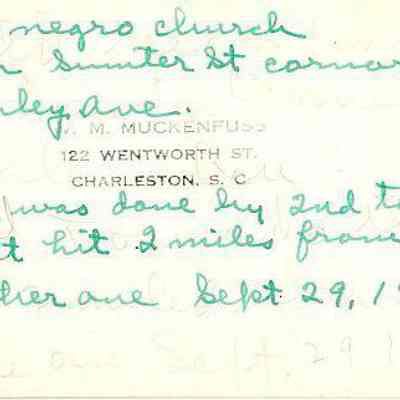 negro church
Sumter St cornor
ley ave.
M. MUCKENFUSS
122 WENTWORTH ST.
CHARLESTON, S. C
was done by 2nd to
t hit 2 miles from
her one Sept 29, 1
Sept. 29 1